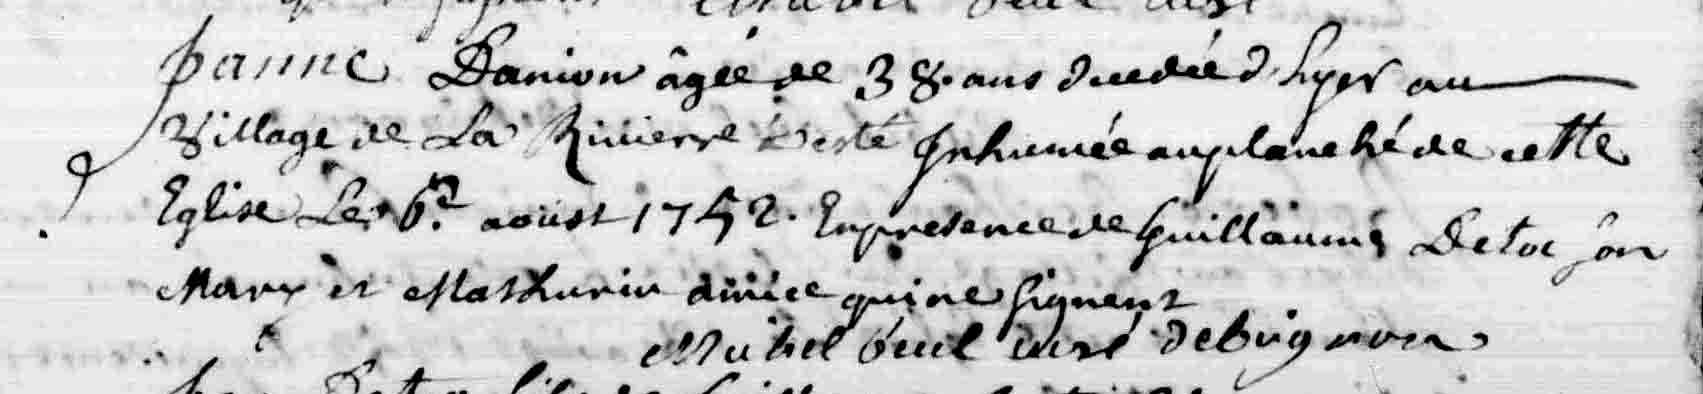 Janne Danion âgée de 38. ans decedée d'hyer au
Village de La Riuierre à esté Inhumée au planché de cette
Eglise Le 6.e aoûst 1752. En presence de Guillaume Detoc son
Mary et Mathurin amice qui ne signent
Michel curé de buignon